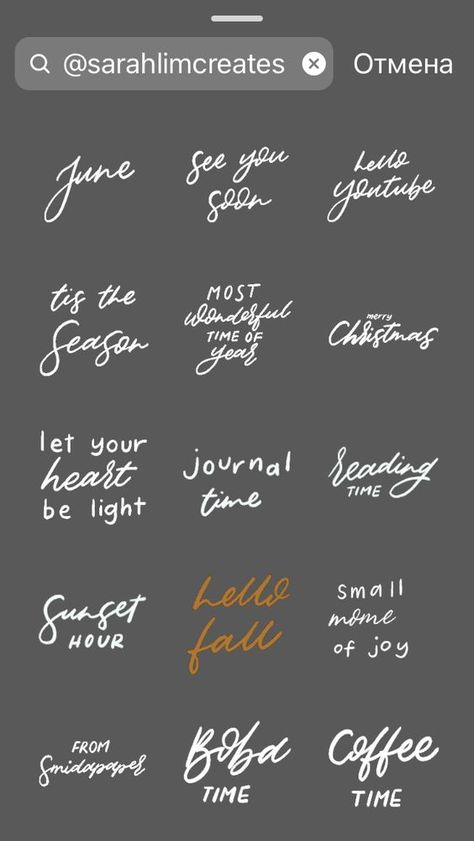 @sarahlimcreates
Отмена
June
see you
soon
hello
youtube
tis the
Season
MOST
wonderful
TIME OF
year
merry
Christmas
let your
heart
be light
journal
time
reading
TIME
Sunset
HOUR
hello
fall
small
mome
of joy
FROM
Smidapaper
Boba
TIME
Coffee
TIME